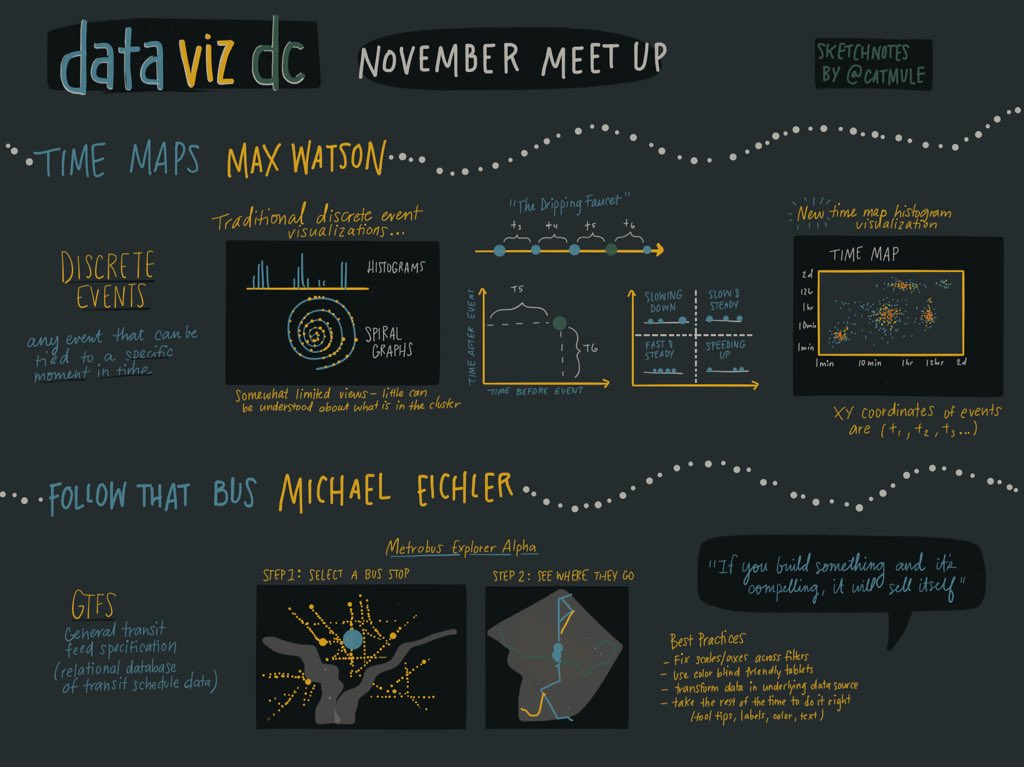 data viz dc
NOVEMBER MEET UP
SKETCHNOTES
BY @CATMULE
TIME MAPS MAX WATSON
DISCRETE
EVENTS
any event that can be
tied to a specific
moment in time
Traditional discrete event
visualizations...
HISTOGRAMS
SPIRAL
GRAPHS
Somewhat limited views - little can
be understood about what is in the cluster
"The Dripping Faucet"
t3 t4 t5 t6
TIME AFTER EVENT
T5
T6
TIME BEFORE EVENT
SLOWING
DOWN
SLOW &
STEADY
FAST &
STEADY
SPEEDING
UP
New time map histogram
visualization
TIME MAP
2d
12h
1hr
10min
1min
1min 10min 1hr 12hrs 2d
XY coordinates of events
are (t1, t2, t3...)
FOLLOW THAT BUS MICHAEL EICHLER
GTFS
General transit
feed specification
(relational database
of transit schedule data)
Metrobus Explorer Alpha
STEP 1: SELECT A BUS STOP
STEP 2: SEE WHERE THEY GO
"If you build something and it's
compelling, it will sell itself"
Best Practices
- Fix scales/axes across filters
- use color blind friendly tablets
- transform data in underlying data source
- take the rest of the time to do it right
(tool tips, labels, color, text)